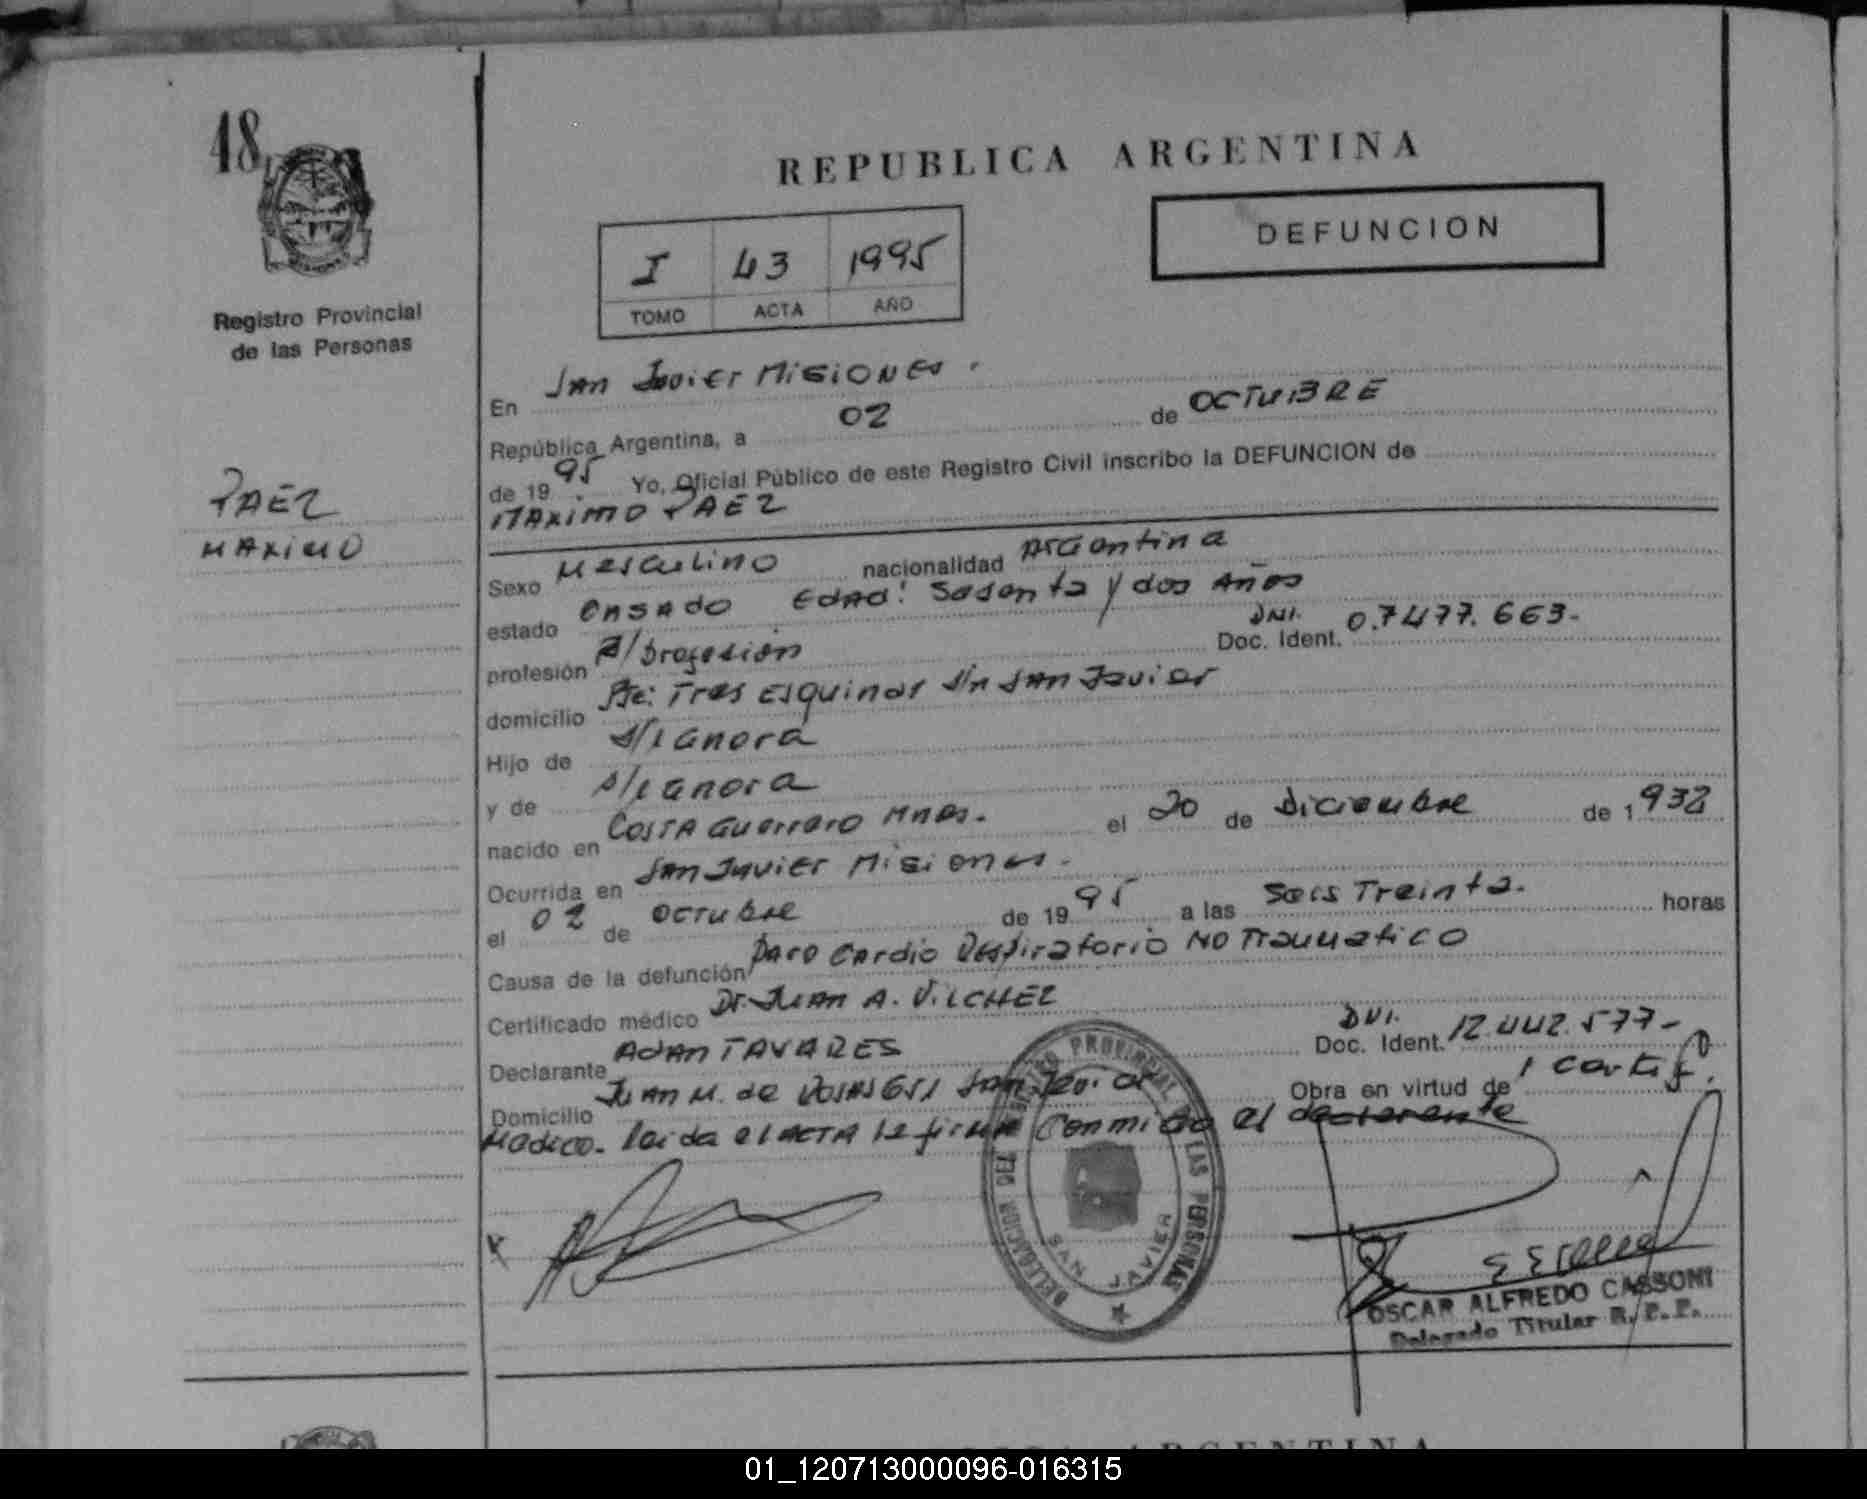 48
REPUBLICA ARGENTINA
DEFUNCION
I 43 1995
TOMO ACTA AÑO
Registro Provincial
de las Personas
PAEZ
MAXIMO
En San Javier Misiones.
República Argentina, a 02 de OCTUBRE
de 19 95 Yo, Oficial Público de este Registro Civil inscribo la DEFUNCION de
MAXIMO PAEZ
Sexo Masculino nacionalidad Argentina
estado Casado Edad: Sesenta y dos Años
profesión s/profesión Doc. Ident. DNI. 0.7477.663-
domicilio Pje: Tres Esquinas s/n San Javier
Hijo de s/ignora
y de s/ignora
nacido en Costa Guerrero Mnes. el 20 de Diciembre de 1932
Ocurrida en San Javier Misiones.
el 02 de octubre de 19 95 a las Seis Treinta. horas
Causa de la defunción Paro Cardio Respiratorio NO Traumatico
Certificado médico Dr. Juan A. VILCHEZ
Declarante ADAN TAVARES Doc. Ident. DNI. 12.442.577-
Domicilio Juan M. de Rosas 651 San Javier Obra en virtud de 1 Certif.
Medico. leida el ACTA la firma Conmigo el declarante
DELEGACION DEL REGISTRO PROVINCIAL DE LAS PERSONAS
SAN JAVIER
OSCAR ALFREDO CASSONI
Delegado Titular R. P. P.
REPUBLICA ARGENTINA
01_120713000096-016315